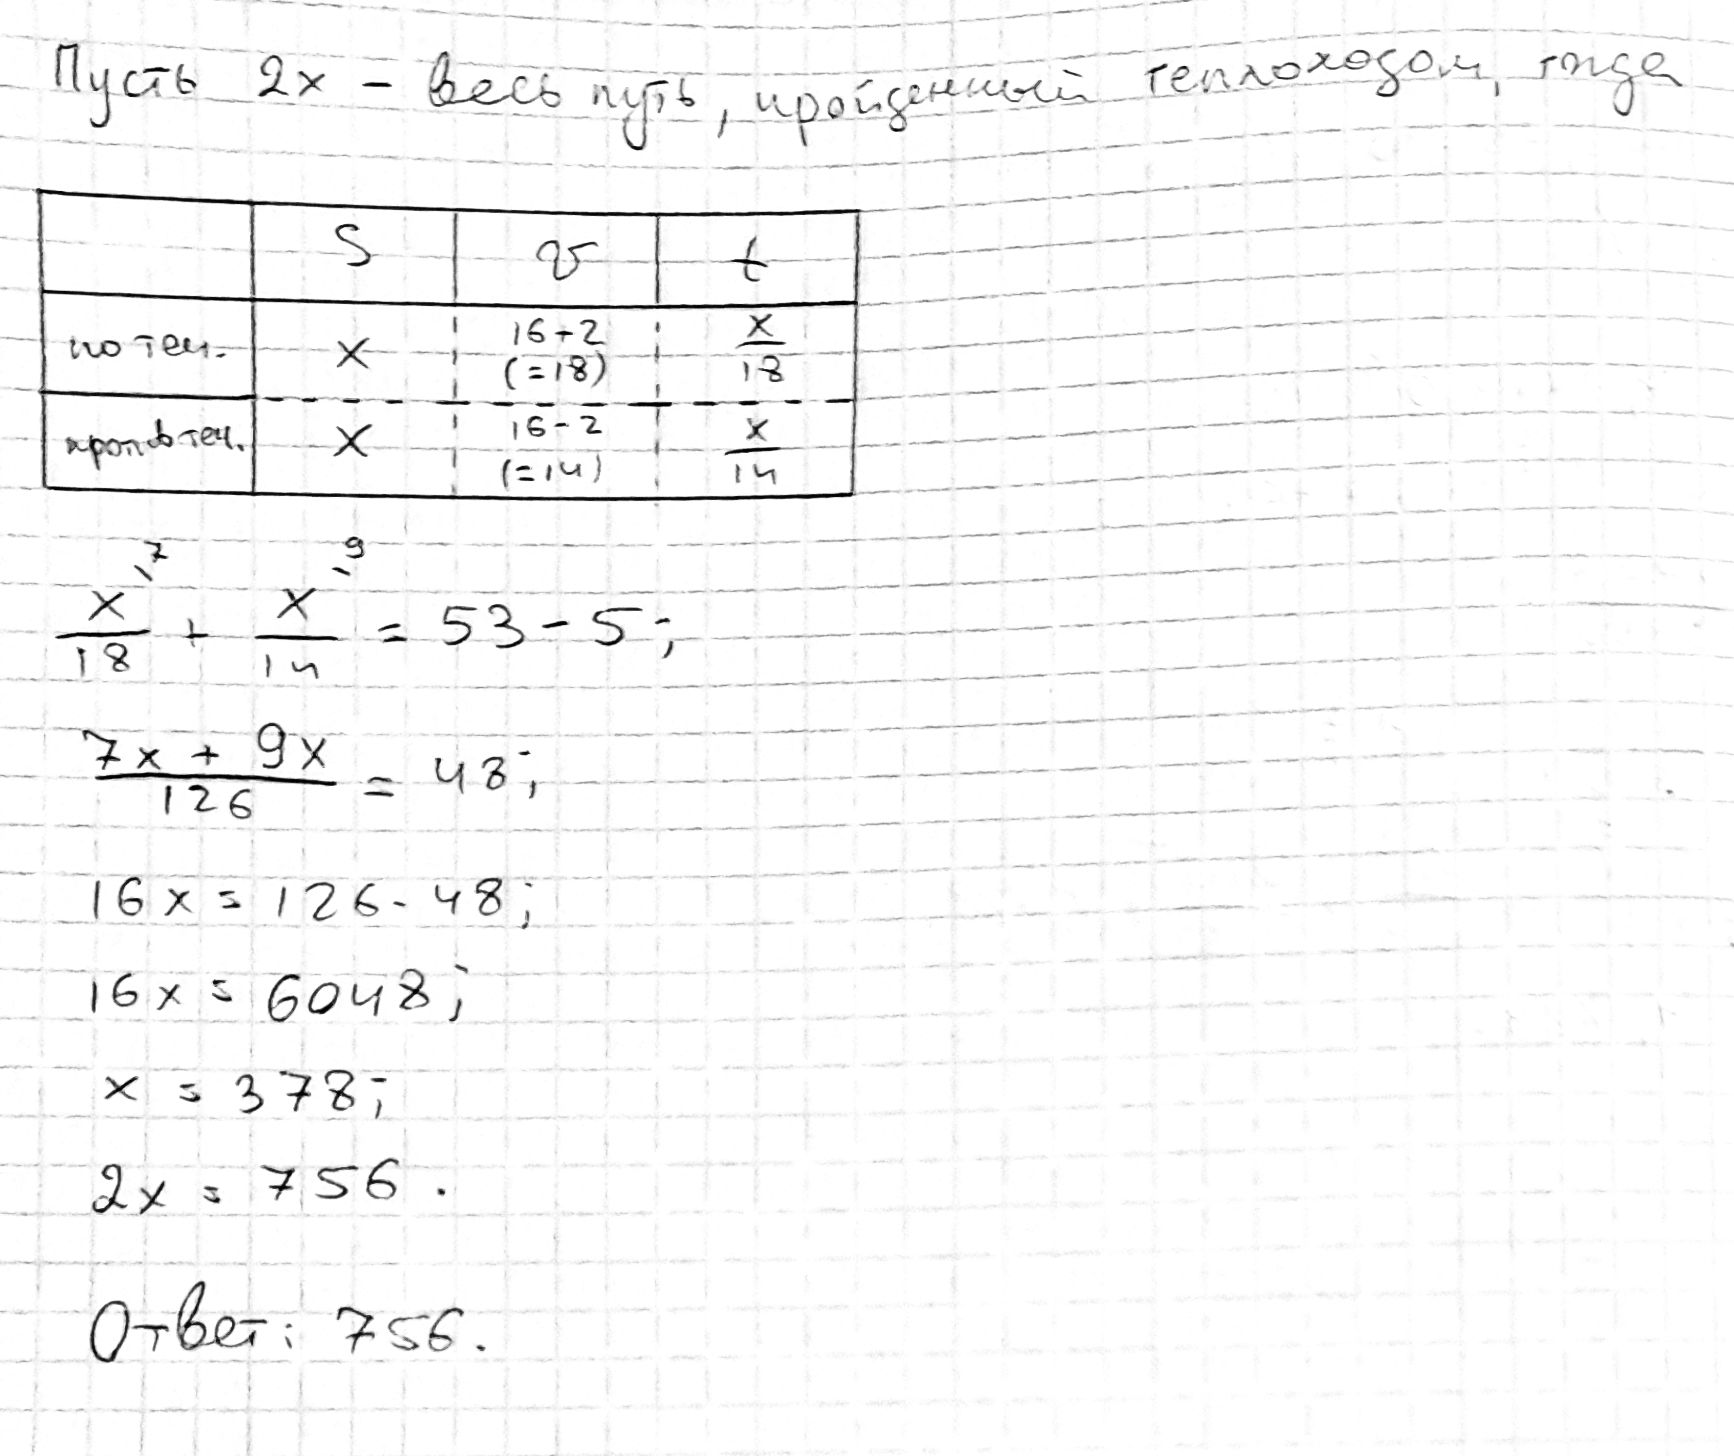 Пусть 2x – весь путь, пройденный теплоходом, тогда
S v t
по теч. x 16+2 (=18) x/18
против теч. x 16-2 (=14) x/14
x/18 ·7 + x/14 ·9 = 53 - 5;
(7x + 9x)/126 = 48;
16x = 126·48;
16x = 6048;
x = 378;
2x = 756.
Ответ: 756.